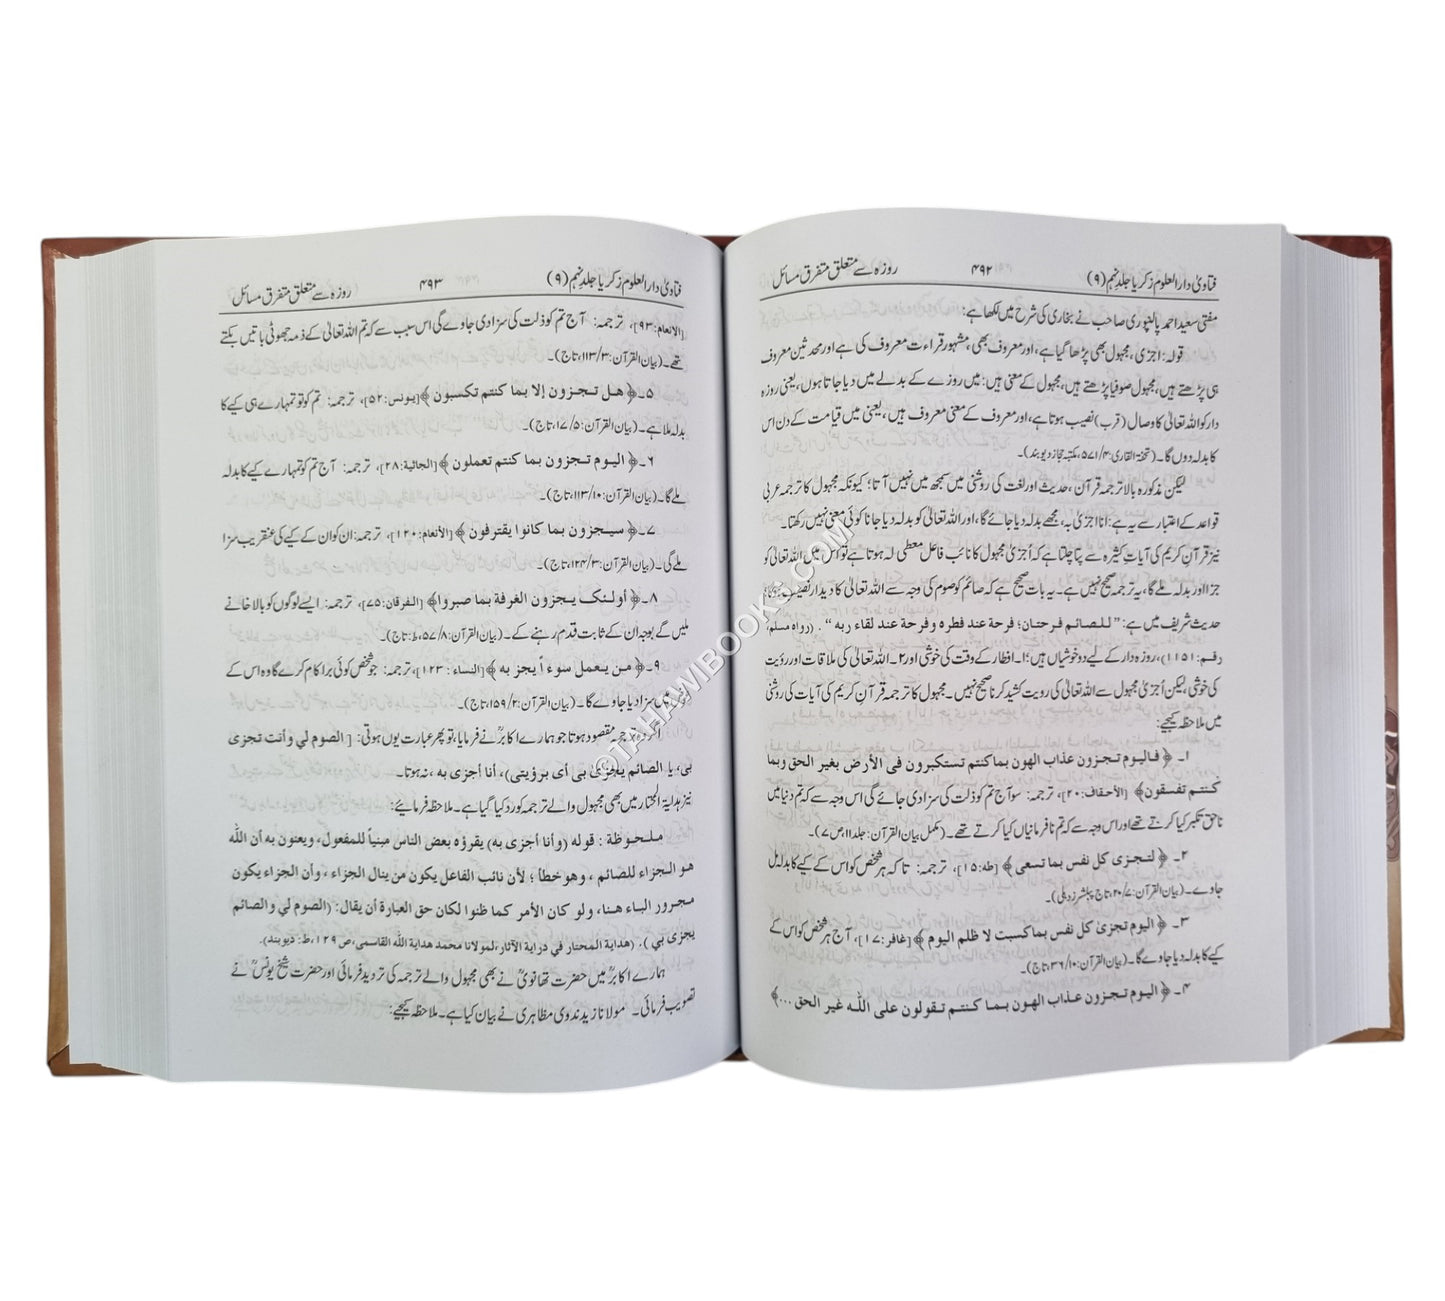 فتاویٰ دارالعلوم زکریا جلد نہم (۹) ۴۹۲ روزہ سے متعلق متفرق مسائل
مفتی سعید احمد پالنپوری صاحب نے بخاری کی شرح میں لکھا ہے:
قولہ: اجزی، مجہول بھی پڑھا گیا ہے، اور معروف بھی، مشہور قراءت معروف کی ہے اور محدثین معروف
ہی پڑھتے ہیں، مجہول صوفیا پڑھتے ہیں، مجہول کے معنی ہیں: میں روزے کے بدلے میں دیا جاتا ہوں، یعنی روزہ
دار کو اللہ تعالیٰ کا وصال (قرب) نصیب ہوتا ہے، اور معروف کے معنی معروف ہیں، یعنی میں قیامت کے دن اس
کا بدلہ دوں گا۔ (تحفۃ القاری: ۵۷۱/۴، مکتبہ حجاز دیوبند)۔
لیکن مذکورہ بالا ترجمہ قرآن، حدیث اور لغت کی روشنی میں سمجھ میں نہیں آتا؛ کیونکہ مجہول کا ترجمہ عربی
قواعد کے اعتبار سے یہ ہے: انا اجزیٰ بہ، مجھے بدلہ دیا جائے گا، اور اللہ تعالیٰ کو بدلہ دیا جانا کوئی معنی نہیں رکھتا۔
نیز قرآنِ کریم کی آیاتِ کثیرہ سے پتا چلتا ہے کہ اُجزیٰ مجہول کا نائب فاعل معطی لہ ہوتا ہے تو اس میں اللہ تعالیٰ کو
جزا اور بدلہ ملے گا، یہ ترجمہ صحیح نہیں ہے۔ یہ بات صحیح ہے کہ صائم کو صوم کی وجہ سے اللہ تعالیٰ کا دیدار نصیب ہوگا
حدیث شریف میں ہے: "للصائم فرحتان؛ فرحة عند فطره وفرحة عند لقاء ربه" . (رواه مسلم،
رقم: ۱۱۵۱)، روزہ دار کے لیے دو خوشیاں ہیں: ۱۔ افطار کے وقت کی خوشی اور ۲۔ اللہ تعالیٰ کی ملاقات اور رؤیت
کی خوشی، لیکن اُجزیٰ مجہول سے اللہ تعالیٰ کی رویت کشید کرنا صحیح نہیں۔ مجہول کا ترجمہ قرآنِ کریم کی آیات کی روشنی
میں ملاحظہ کیجیے:
۱۔ ﴿ فاليوم تجزون عذاب الهون بما كنتم تستكبرون في الأرض بغير الحق وبما
كنتم تفسقون﴾ [الأحقاف: ۲۰]، ترجمہ: سو آج تم کو ذلت کی سزا دی جائے گی اس وجہ سے کہ تم دنیا میں
ناحق تکبر کیا کرتے تھے اور اس وجہ سے کہ تم نافرمانیاں کیا کرتے تھے۔ (مکمل بیان القرآن: جلد ۱۱،ص ۷)۔
۲۔ ﴿ لتجزى كل نفس بما تسعى ﴾ [طه: ۱۵]، ترجمہ: تاکہ ہر شخص کو اس کے کیے کا بدلہ مل
جاوے۔ (بیان القرآن: ۲۰/۷، تاج پبلشرز دہلی)۔
۳۔ ﴿ اليوم تجزىٰ كل نفس بما كسبت لا ظلم اليوم ﴾ [غافر: ۱۷]، آج ہر شخص کو اس کے
کیے کا بدلہ دیا جاوے گا۔ (بیان القرآن: ۳۶/۱۰، تاج)۔
۴۔ ﴿ اليوم تجزون عذاب الهون بما كنتم تقولون على الله غير الحق ...﴾
فتاویٰ دارالعلوم زکریا جلد نہم (۹) ۴۹۳ روزہ سے متعلق متفرق مسائل
[الانعام: ۹۳]، ترجمہ: آج تم کو ذلت کی سزا دی جاوے گی اس سبب سے کہ تم اللہ تعالیٰ کے ذمہ جھوٹی باتیں بکتے
تھے۔ (بیان القرآن: ۱۱۳/۳، تاج)۔
۵۔ ﴿ هل تجزون إلا بما كنتم تكسبون ﴾ [یونس: ۵۲]، ترجمہ: تم کو تو تمہارے ہی کیے کا
بدلہ ملا ہے۔ (بیان القرآن: ۱۷/۵، تاج)۔
۶۔ ﴿ اليوم تجزون بما كنتم تعملون ﴾ [الجاثية: ۲۸]، ترجمہ: آج تم کو تمہارے کیے کا بدلہ
ملے گا۔ (بیان القرآن: ۱۱۳/۱۰، تاج)۔
۷۔ ﴿ سيجزون بما كانوا يقترفون ﴾ [الأنعام: ۱۲۰]، ترجمہ: ان کو ان کے کیے کی عنقریب سزا
ملے گی۔ (بیان القرآن: ۱۲۴/۳، تاج)۔
۸۔ ﴿ أولئك يجزون الغرفة بما صبروا﴾ [الفرقان: ۷۵]، ترجمہ: ایسے لوگوں کو بالا خانے
ملیں گے بوجہ ان کے ثابت قدم رہنے کے۔ (بیان القرآن: ۵۷/۸، ط: تاج)۔
۹۔ ﴿ من يعمل سوءاً يجز به ﴾ [النساء: ۱۲۳]، ترجمہ: جو شخص کوئی برا کام کرے گا وہ اس کے
میں سزا دیا جاوے گا۔ (بیان القرآن: ۱۵۹/۲، تاج)۔
اگر وہ ترجمہ مقصود ہوتا جو ہمارے اکابرؒ نے فرمایا، تو پھر عبارت یوں ہوتی: [الصوم لي وأنت تجزى
بي، يا الصائم يجزىٰ بي أى برؤيتى)، أنا أجزى به، نہ ہوتا۔
نیز ہدایۃ المختار میں بھی مجہول والے ترجمہ کو رد کیا گیا ہے۔ ملاحظہ فرمایئے:
ملحوظة : قوله (وأنا أجزى به) يقرؤه بعض الناس مبنياً للمفعول، ويعنون به أن الله
هو الجزاء للصائم ، وهو خطأ ؛ لأن نائب الفاعل يكون من ينال الجزاء ، وأن الجزاء يكون
مجرور الباء هنا، ولو كان الأمر كما ظنوا لكان حق العبارة أن يقال: (الصوم لي والصائم
يجزى بي ) . (هداية المختار في دراية الآثار، لمولانا محمد هداية الله القاسمي، ص ۱۲۹، ط: ديوبند).
ہمارے اکابرؒ میں حضرت تھانویؒ نے بھی مجہول والے ترجمہ کی تردید فرمائی اور حضرت شیخ یونسؒ نے
تصویب فرمائی۔ مولانا زید ندوی مظاہری نے بیان کیا ہے۔ ملاحظہ کیجیے:
©TAHAWIBOOKS.COM